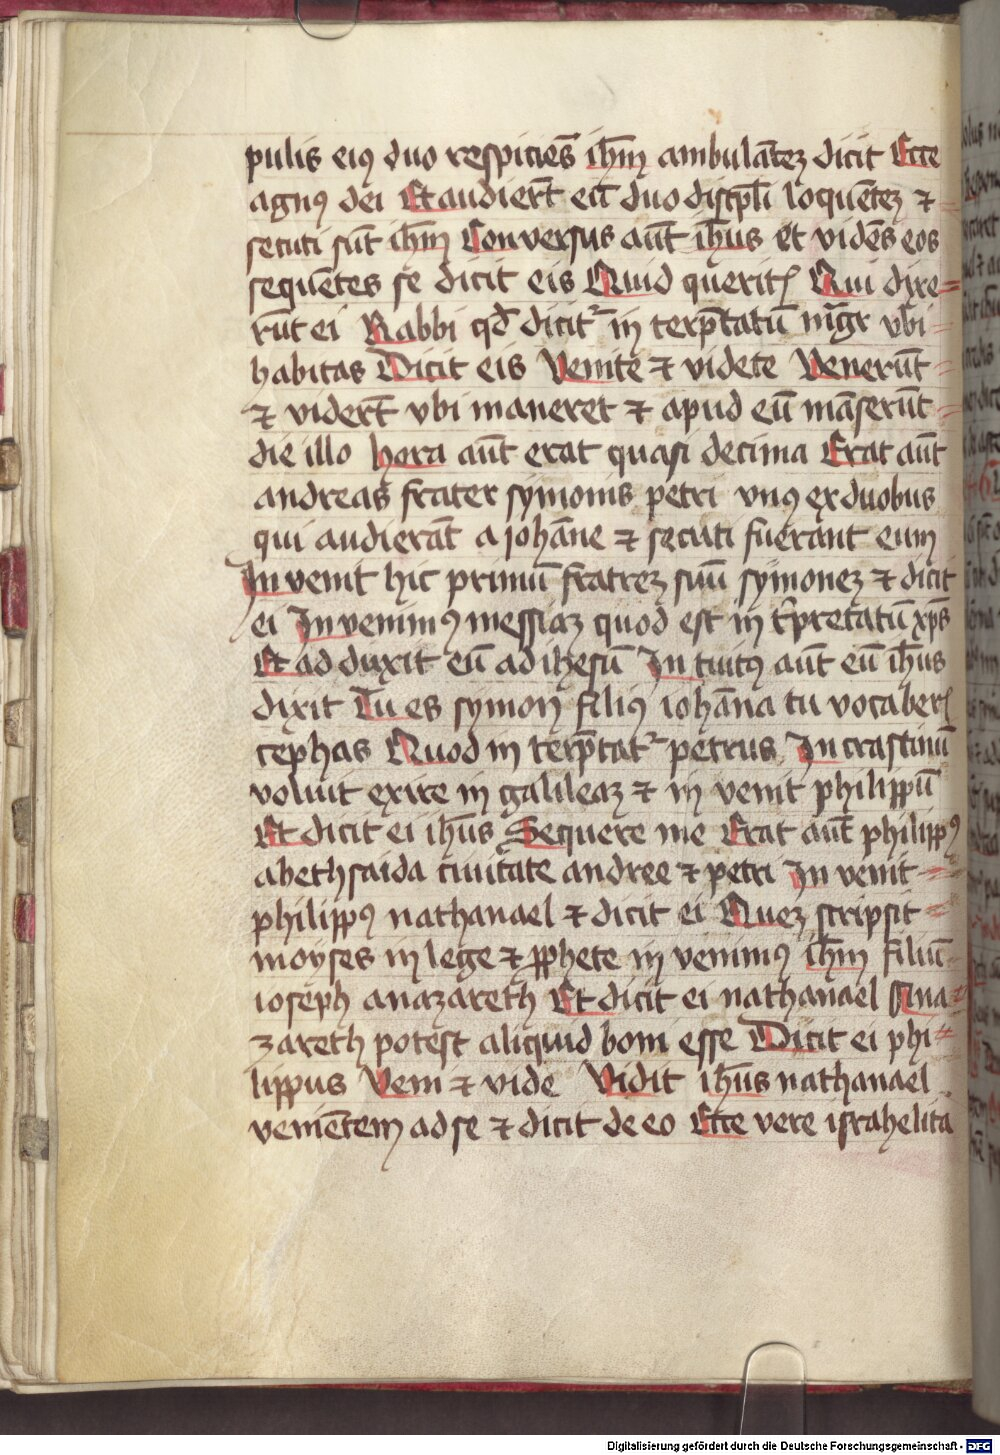 pulis eiꝰ duo respiciēs ih̄m ambulātez dicit Ecce
agnꝰ dei Et audierūt eū duo discipl̄i loquētez ⁊
secuti sūt ih̄m Conversus aūt ih̄us et vidēs eos
sequētes se dicit eis Quid querit̄ Qui dixe=
rūt ei Rabbi qd̄ dicit᷑ in terp̄tatū mḡr vbi
habitas Dicit eis Venite ⁊ videte Venerūt
⁊ viderūt vbi maneret ⁊ apud eū māserūt
die illo hora aūt erat quasi decima Erat aūt
andreas frater symonis petri vnꝰ ex duobus
qui audierāt a johāne ⁊ secuti fuerant eum
In venit hic primū fratrez suū symonez ⁊ dicit
ei In venimꝰ messiaz quod est in t̄pretatū xp̄s
Et ad duxit eū ad ihesū In tuitꝰ aūt eū ih̄us
dixit Tu es symon filiꝰ iohāna tu vocaber̄
cephas Quod in terp̄tat᷑ petrus In crastinū
voluit exire in galileaz ⁊ in venit philippū
Et dicit ei ih̄us Sequere me Erat aūt philippꝰ
abethsaida ciuitate andree ⁊ petri In venit
philippꝰ nathanael ⁊ dicit ei Quez scripsit
moyses in lege ⁊ ꝓphete in venimꝰ ih̄m filiū
ioseph anazareth Et dicit ei nathanael Ana=
zareth potest aliquid boni esse Dicit ei phi=
lippus Veni ⁊ vide Vidit ih̄us nathanael
venietē ad se ⁊ dicit de eo Ecce vere israhelita
Digitalisierung gefördert durch die Deutsche Forschungsgemeinschaft - DFG